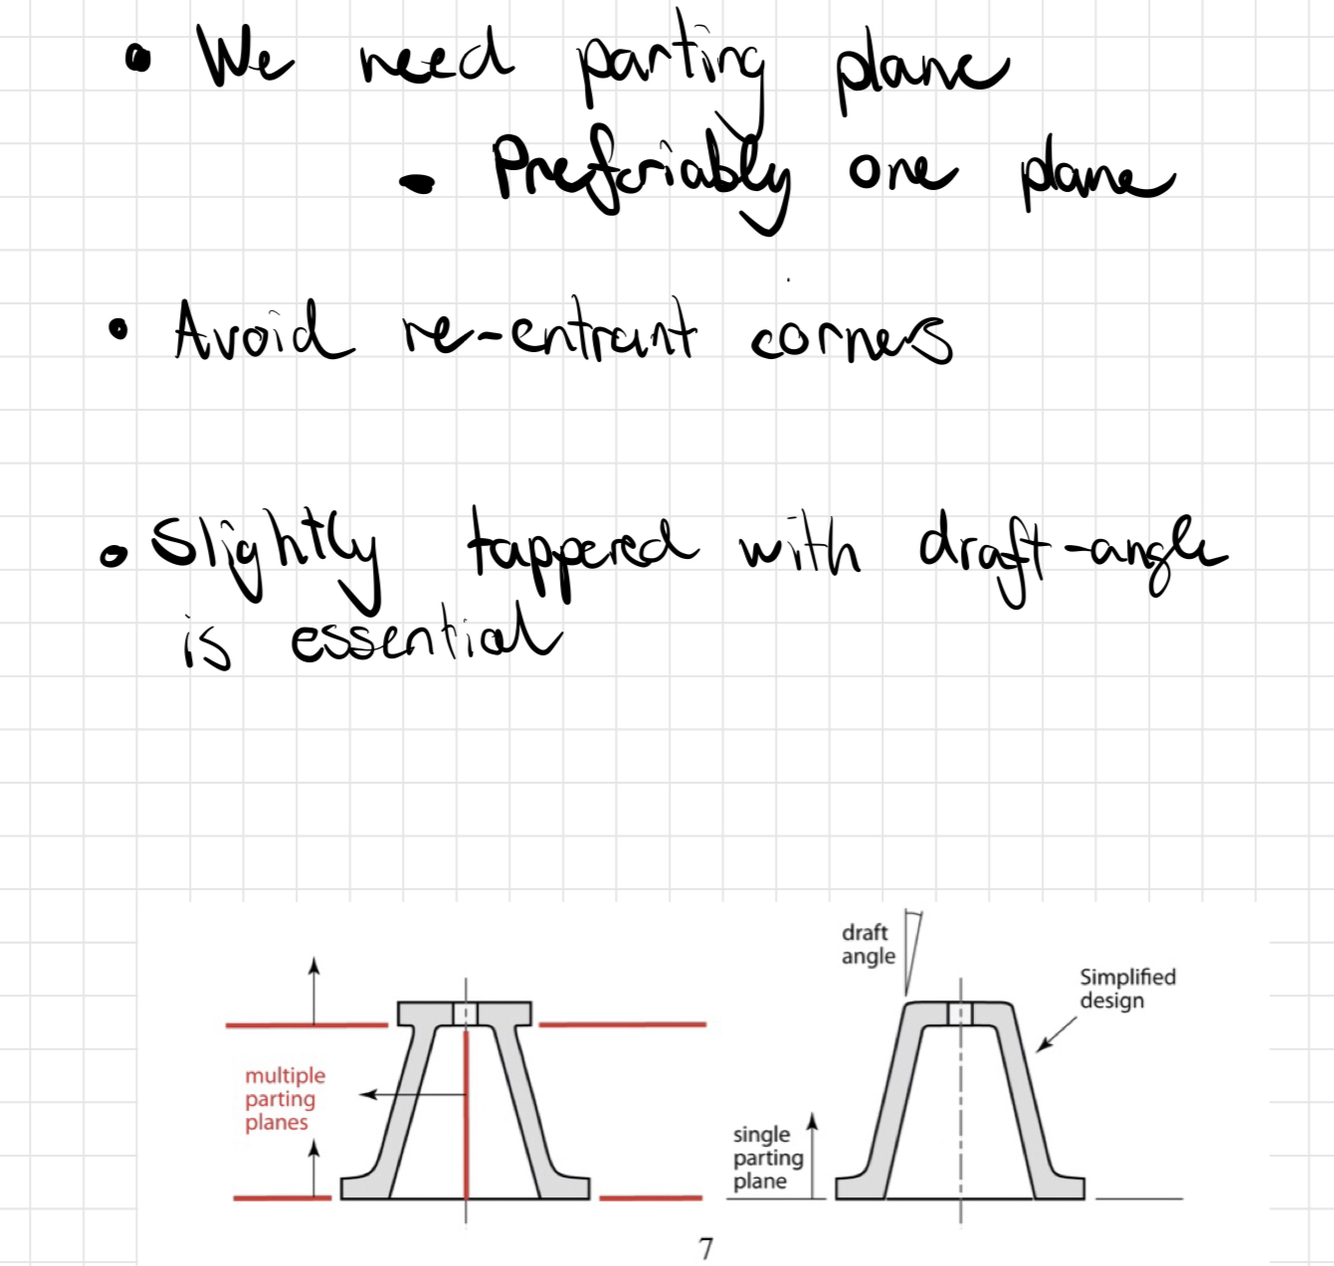 • We need parting plane
- Preferiably one plane
• Avoid re-entrant corners
• Slightly tappered with draft-angle
is essential
draft
angle
Simplified
design
multiple
parting
planes
single
parting
plane
7